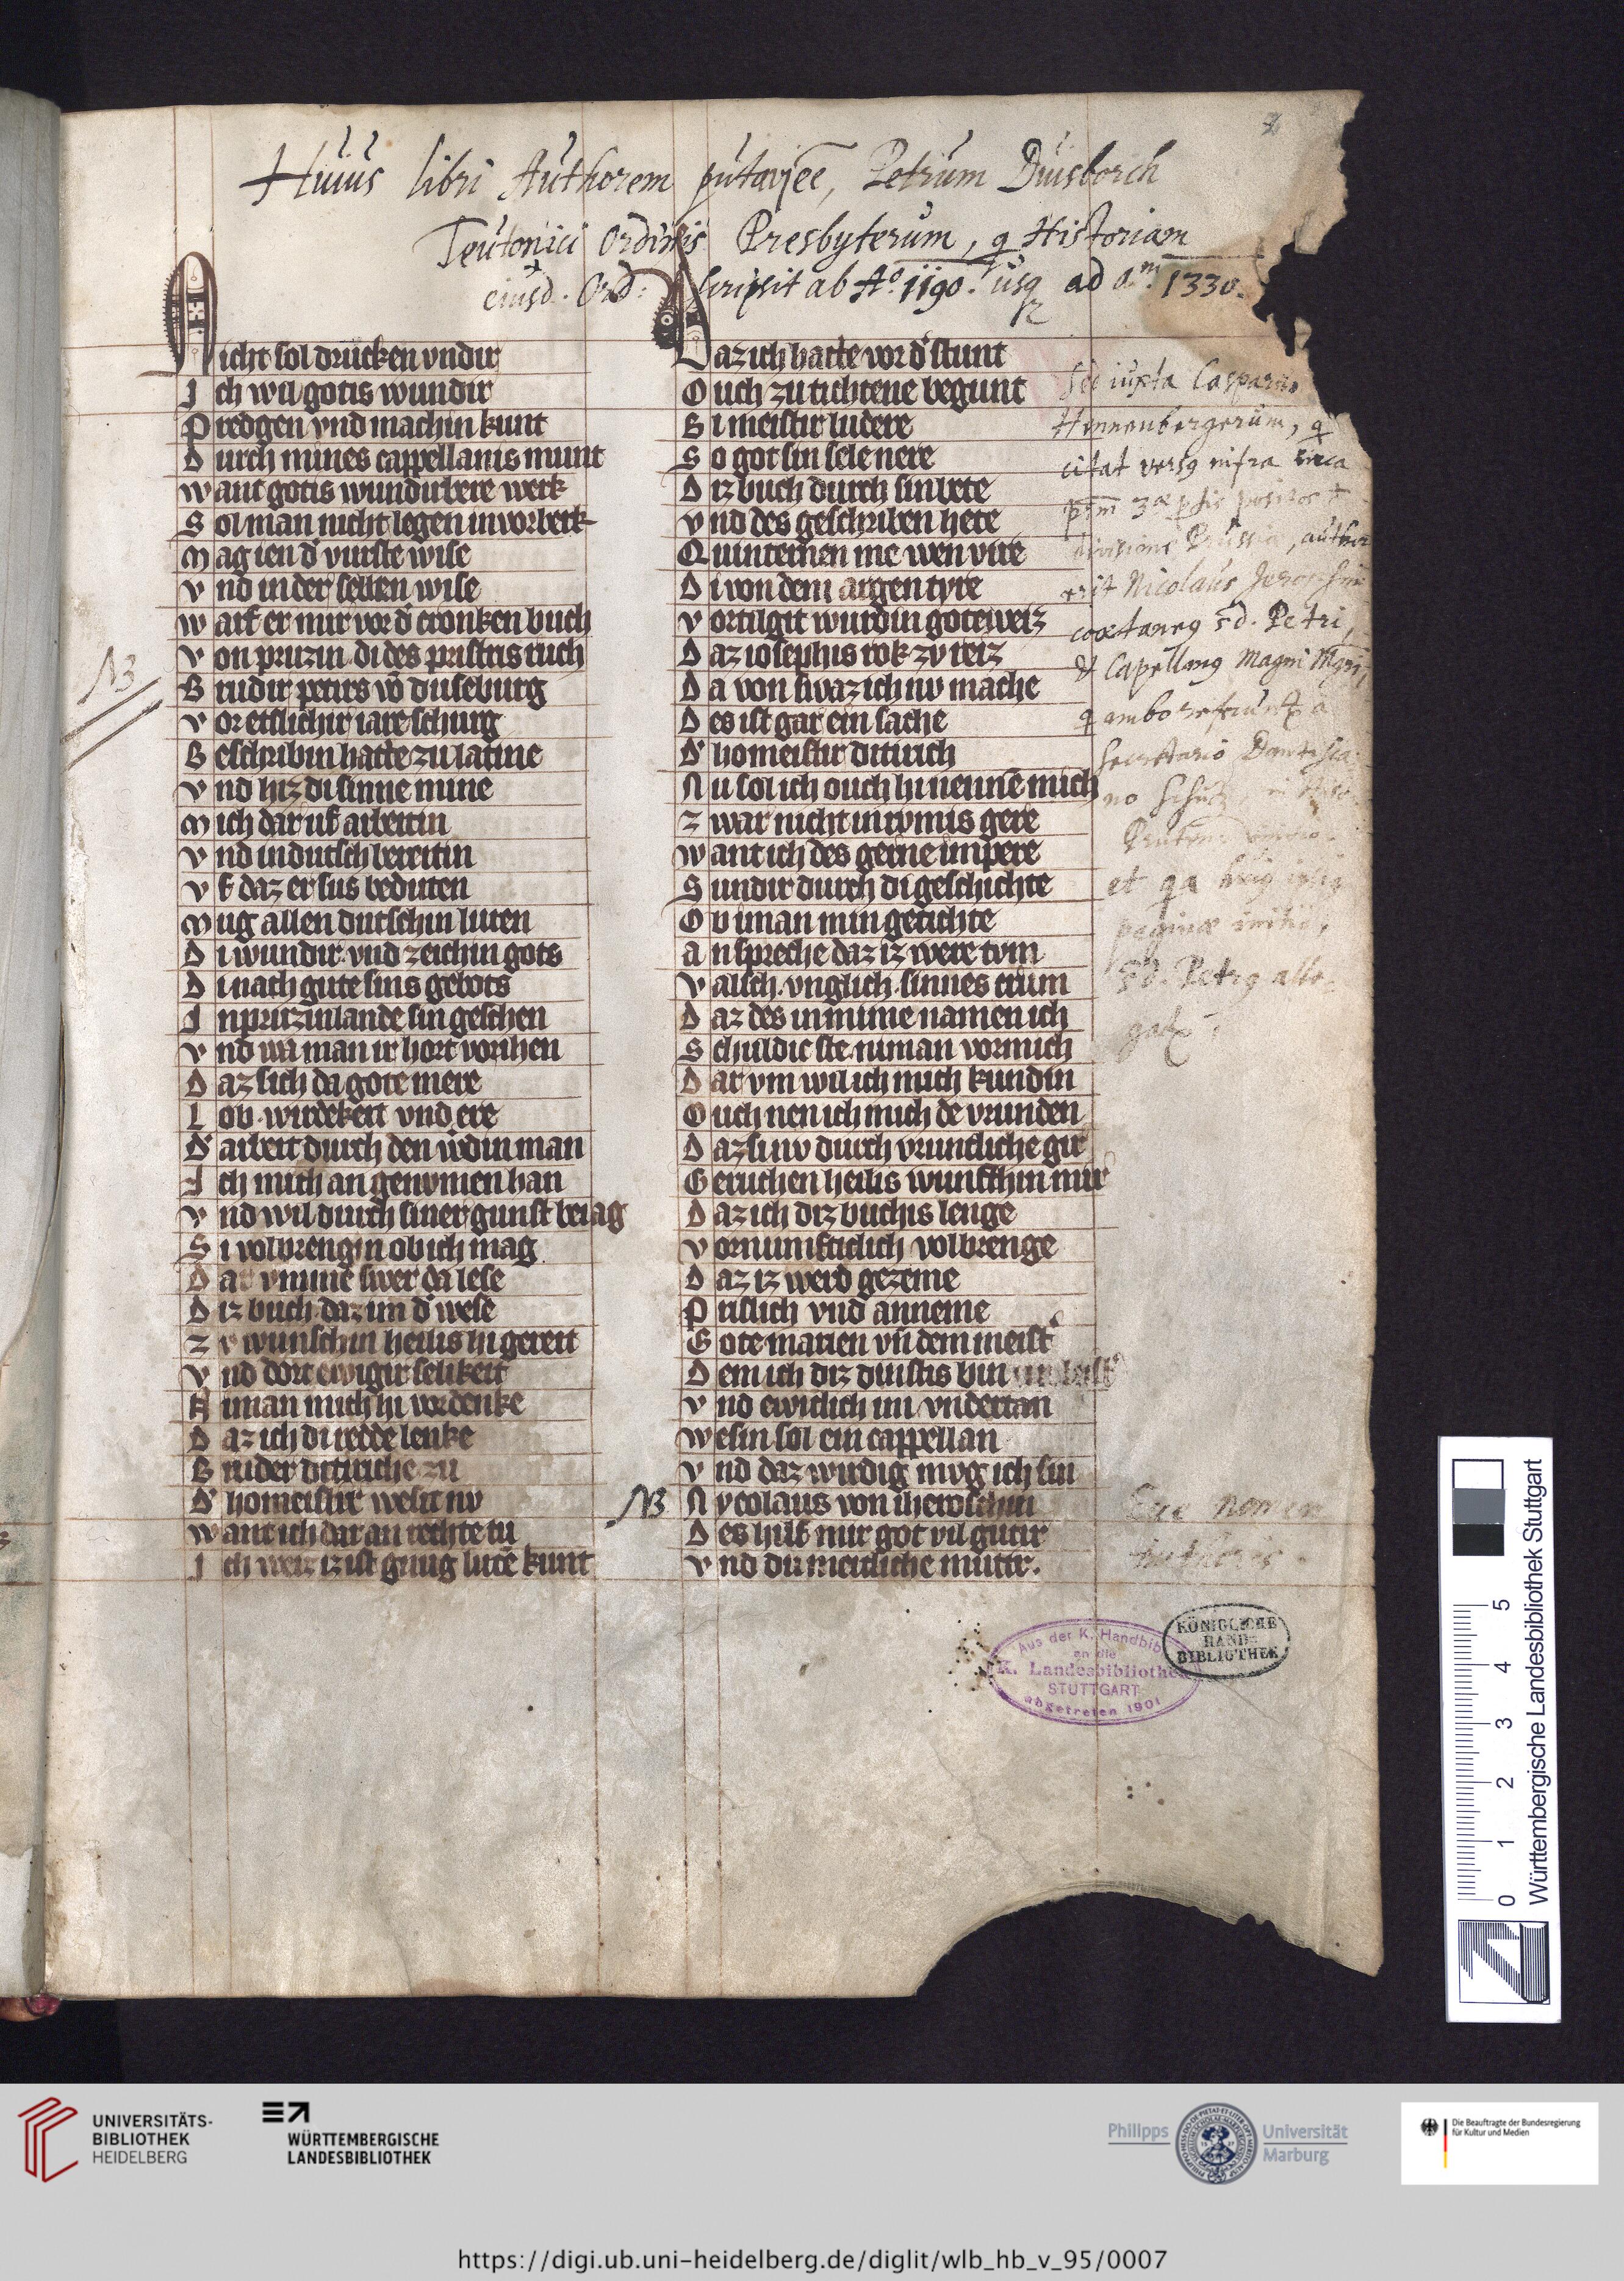 Huius libri Authorem putavisse, Petrum Duisborch
Teutonici Ordinis Presbyterum, q Historiam
eiusd. Ord: scripsit ab Ao. 1190. usq ad a.m 1330.
Nicht sol drucken vndir
Ich wil gotis wundir
Predgen vnd machin kunt
Durch mines cappellanis munt
want gotis wundirbere werk
Sol man nicht legen in vorberk
Mag ien d' vurste wise
vnd in der selben wise
warf er mir vor d' cronken buch
von pruzin di des pristris ruch
Brudir petirs vō duseburg
vor etslichir iare schurg
Beschribin hatte zu latine
vnd hiz di sinne mine
Mich dar uf arbeitin
vnd in dutsch bereitin
vf daz er sus beduten
Mug allen dutschin luten
Di wundir vnd zeichin gots
Di nach gute sins gebots
In pruzinlande sin geschen
vnd wa man ir hort voriehen
Daz sich da gote mere
Lob wirdekeit vnd ere
D' arbeit durch den w̄din man
Ich mich an genomen han
vnd wil durch siner gunst beiag
Si volbrengin ob ich mag
Dar vmme swer da lese
Diz buch daz im d' wese
Zv wunschin heilis hi gereit
vnd dort ewigir selikeit
Niman mich hi vordenke
Daz ich di redde lenke
Bruder dittriche zu
D' homeistir wesit nv
want ich dar an rechte tu
Ich weiz iz ist gnug lutē kunt
Daz ich hatte vor d' stunt
Ouch zu tichtene begunt
Bi meistir ludere
So got sin sele nere
Diz buch durch sin bete
vnd des geschriben hete
Quinternen me wen vire
Di von dem argen tyre
vortilgit wurdin goteweiz
Daz iosephis rok zv reiz
Da von swaz ich nv mache
Des ist gar ein sache
D' homeistir dittrich
Nu sol ich ouch hi nennē mich
Zwar nicht in rvmis gere
want ich des gerne impere
Sundir durch di geschichte
Ob iman min getichte
anspreche daz iz were tvm
valsch vnglich sinnes crum
Daz des in mime namen ich
Schuldic ste niman vor mich
Dar vm wil ich mich kundin
Ouch nen ich mich de vrunden
Daz si nv durch vruntliche gir
Geruchen heilis wunschin mir
Daz ich diz buchis lenge
vornunfticlich volbrenge
Daz iz werd gezeme
Prislich vnd anneme
Gote marien vn̄ dem meist'
Dem ich diz dinstis bin
vnd ewiclich im vndertan
wesin sol ein cappellan
vnd daz wirdig mvg ich sin
Nycolaus von iheroschin
Des hilf mir got vil gutir
vnd du meitliche mutir.
NB
NB
Sed iuxta Casparum
Hennenbergerum, q
citat versq infra circa
divisione Prussiæ, author
erit Nicolaus Jeroschin
coætaneq sd. Petri,
& Capellanq Magni Mgri,
q ambo referunt a
secretario Dantisca-
no Schütz
et qa
paginæ initio,
sd. Petrq alle-
gat
nomen
Aus der K. Handbib
an die
K. Landesbibliothe
STUTTGART
abgetreten 1901
KÖNIGLICHE
HAND=
BIBLIOTHEK
0 1 2 3 4 5
Württembergische Landesbibliothek Stuttgart
UNIVERSITÄTS-
BIBLIOTHEK
HEIDELBERG
WÜRTTEMBERGISCHE
LANDESBIBLIOTHEK
Philipps Universität
Marburg
Die Beauftragte der Bundesregierung
für Kultur und Medien
https://digi.ub.uni-heidelberg.de/diglit/wlb_hb_v_95/0007